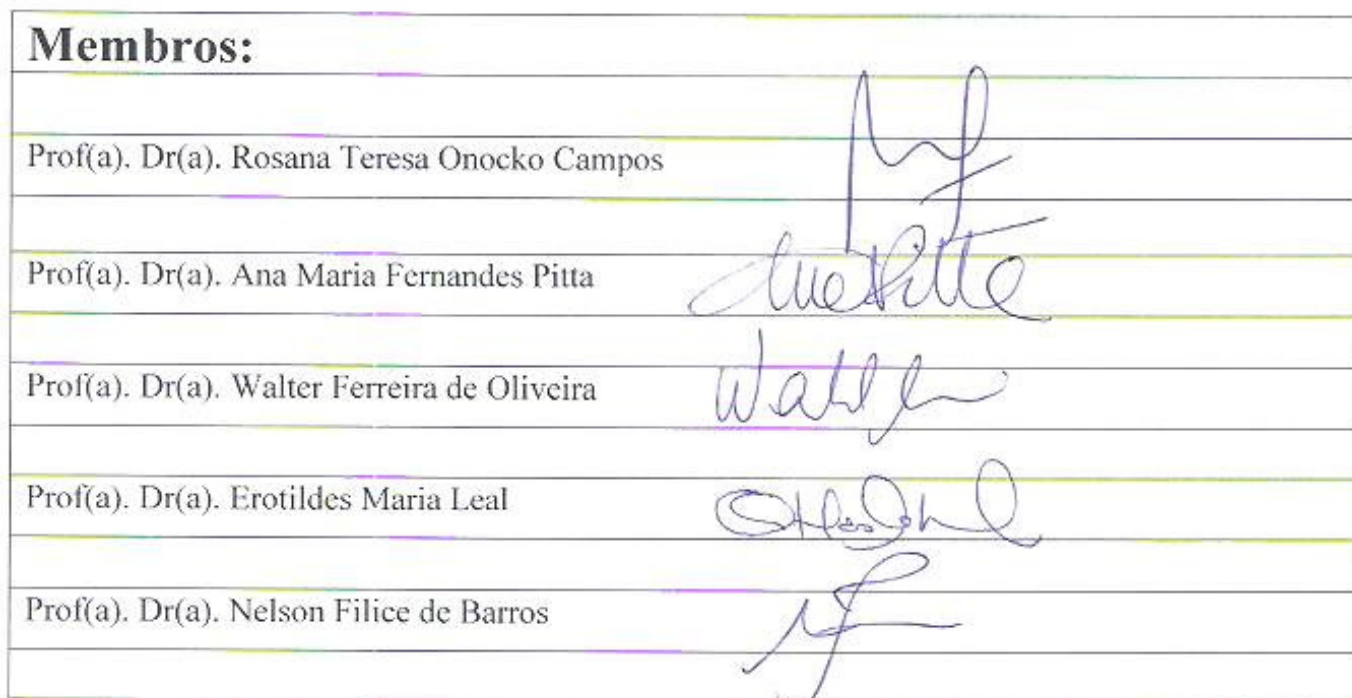 Membros:
Prof(a). Dr(a). Rosana Teresa Onocko Campos
Prof(a). Dr(a). Ana Maria Fernandes Pitta
Prof(a). Dr(a). Walter Ferreira de Oliveira
Prof(a). Dr(a). Erotildes Maria Leal
Prof(a). Dr(a). Nelson Filice de Barros